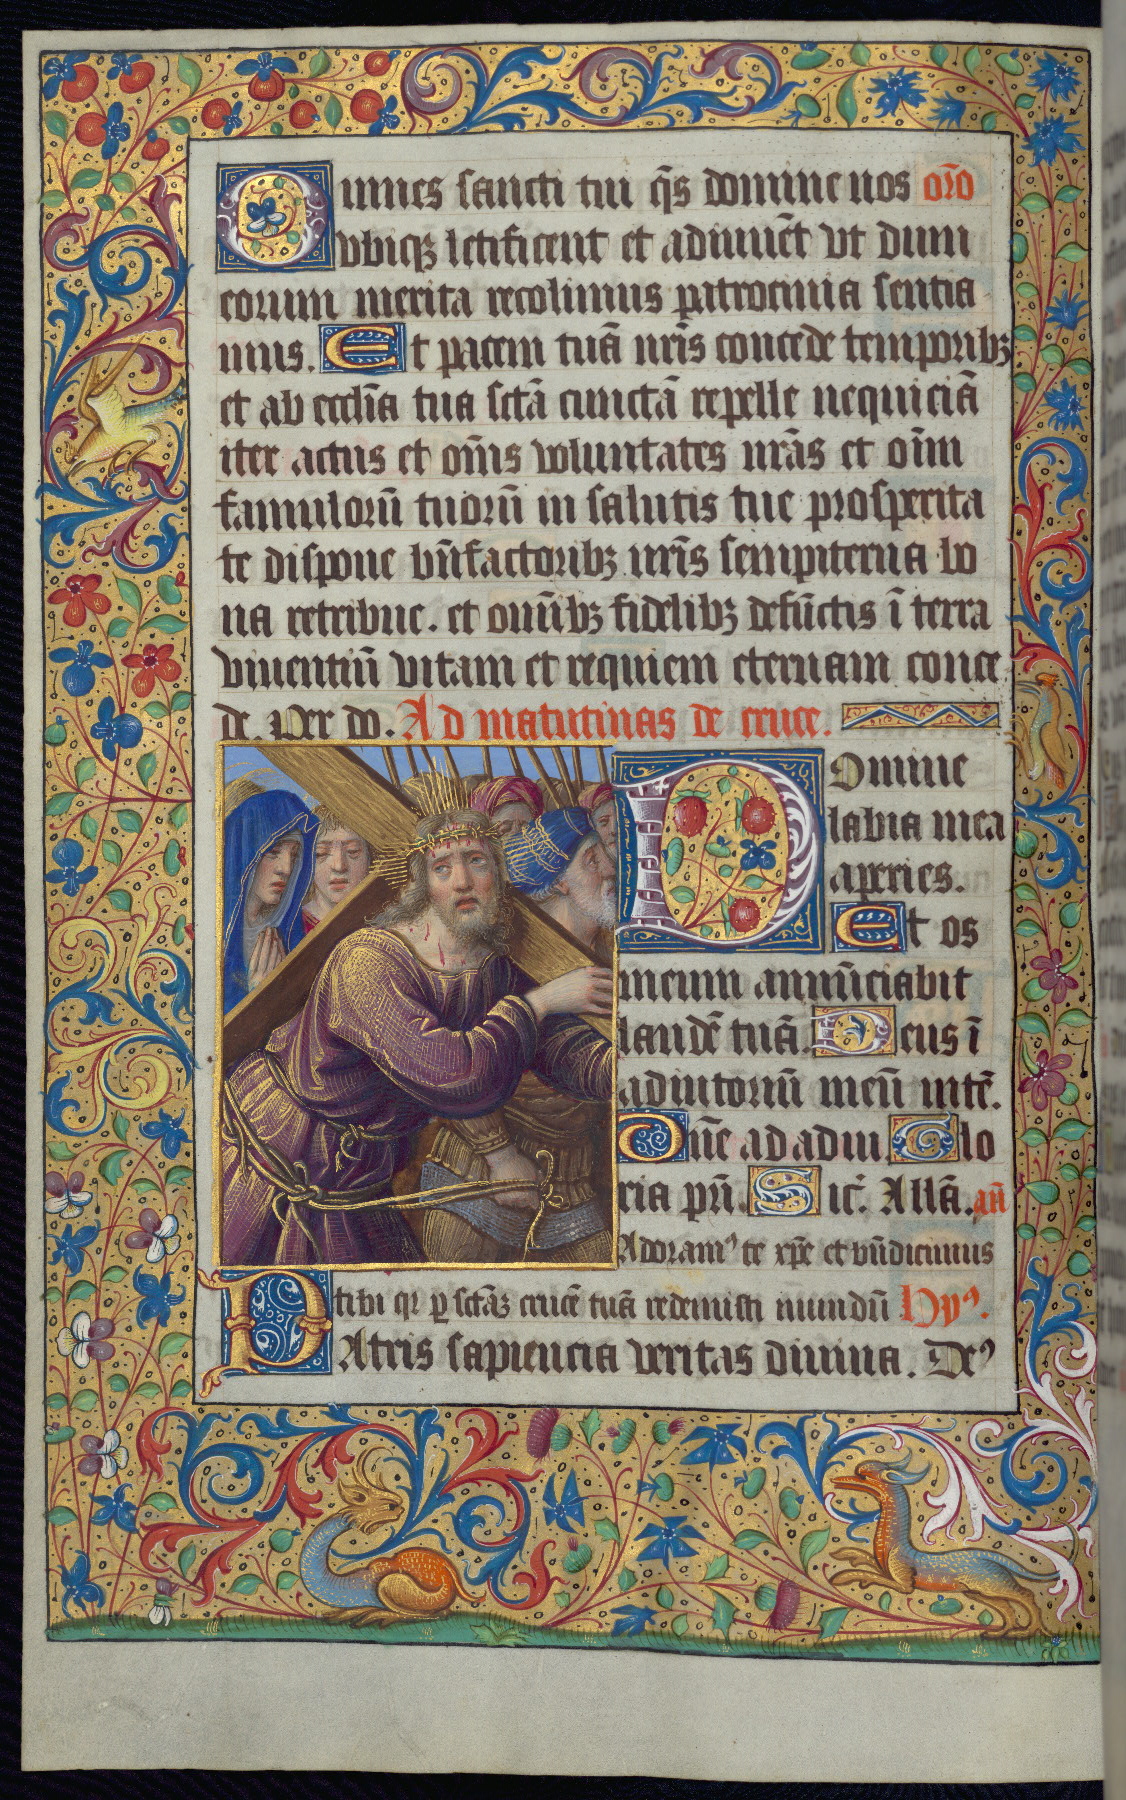 Omnes sancti tui q̃s domine nos or̃o
vbiqꝫ letificent et adiuuẽt vt dum
eorum merita recolimus patrocinia sentia
mus. Et pacem tuã nr̃is concede temporibꝫ
et ab eccl̃ia tua sctã cunctã repelle nequiciã
iter actus et om̃is voluntates nr̃as et oĩm
famulorũ tuorũ in salutis tue prosperita
te dispone bñfactoribꝫ nr̃is sempiterna bo
na retribue. et omnĩbꝫ fidelibꝫ defũctis ĩ terra
viuentiũ vitam et requiem eternam conce
de. Per do. Ad matutinas de cruce.
Domine
labia mea
aperies.
Et os
meum annũciabit
laudẽ tuã. Deus ĩ
adiutoriũ meũ intẽ.
Dñe ad adiu. Glo
ria pr̃i. Sic̃. All̃a. añ
Adoramꝰ te xp̃e et bñdicimus
tibi qr ꝑ sctãꝫ crucẽ tuã redemisti mundũ Hyꝰ.
PAtris sapiencia veritas diuina. Deꝰ